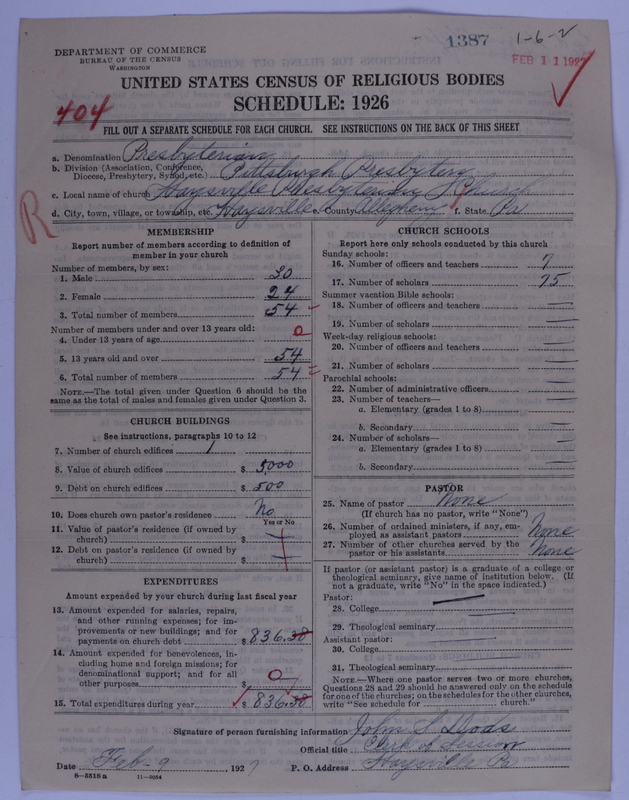 1387
1-6-2
FEB 11 192
DEPARTMENT OF COMMERCE
BUREAU OF THE CENSUS
WASHINGTON
UNITED STATES CENSUS OF RELIGIOUS BODIES
SCHEDULE: 1926
404
FILL OUT A SEPARATE SCHEDULE FOR EACH CHURCH. SEE INSTRUCTIONS ON THE BACK OF THIS SHEET
a. Denomination Presbyterian
b. Division (Association, Conference,
Diocese, Presbytery, Synod, etc.) Pittsburgh Presbytery
c. Local name of church Haysville Presbyterian Church
d. City, town, village, or township, etc. Haysville e. County Allegheny f. State Pa
R
MEMBERSHIP
Report number of members according to definition of
member in your church
Number of members, by sex:
1. Male 30
2. Female 24
3. Total number of members 54
Number of members under and over 13 years old:
4. Under 13 years of age 0
5. 13 years old and over 54
6. Total number of members 54
NOTE.—The total given under Question 6 should be the
same as the total of males and females given under Question 3.
CHURCH BUILDINGS
See instructions, paragraphs 10 to 12
7. Number of church edifices 1
8. Value of church edifices $ 5000
9. Debt on church edifices $ 500
10. Does church own pastor's residence No
Yes or No
11. Value of pastor's residence (if owned by
church) $
12. Debt on pastor's residence (if owned by
church) $
EXPENDITURES
Amount expended by your church during last fiscal year
13. Amount expended for salaries, repairs,
and other running expenses; for im-
provements or new buildings; and for
payments on church debt $ 836.38
14. Amount expended for benevolences, in-
cluding home and foreign missions; for
denominational support; and for all
other purposes $ 0
15. Total expenditures during year $ 836.38
CHURCH SCHOOLS
Report here only schools conducted by this church
Sunday schools:
16. Number of officers and teachers 7
17. Number of scholars 75
Summer vacation Bible schools:
18. Number of officers and teachers
19. Number of scholars
Week-day religious schools:
20. Number of officers and teachers
21. Number of scholars
Parochial schools:
22. Number of administrative officers
23. Number of teachers—
a. Elementary (grades 1 to 8)
b. Secondary
24. Number of scholars—
a. Elementary (grades 1 to 8)
b. Secondary
PASTOR
25. Name of pastor None
(If church has no pastor, write "None")
26. Number of ordained ministers, if any, em-
ployed as assistant pastors None
27. Number of other churches served by the
pastor or his assistants None
If pastor (or assistant pastor) is a graduate of a college or
theological seminary, give name of institution below. (If
not a graduate, write "No" in the space indicated.)
Pastor:
28. College
29. Theological seminary
Assistant pastor:
30. College
31. Theological seminary
NOTE.—Where one pastor serves two or more churches,
Questions 28 and 29 should be answered only on the schedule
for one of the churches; on the schedules for the other churches,
write "See schedule for church."
Signature of person furnishing information John S. Dods
Official title Clerk of Session
Date Feb-9 1927 P. O. Address Haysville Pa
8—5518 a 11—9064